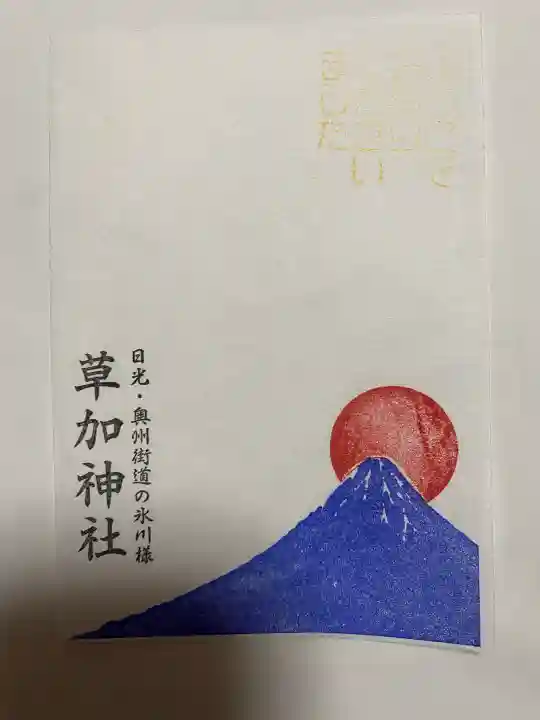 日光・奥州街道の氷川様
草加神社